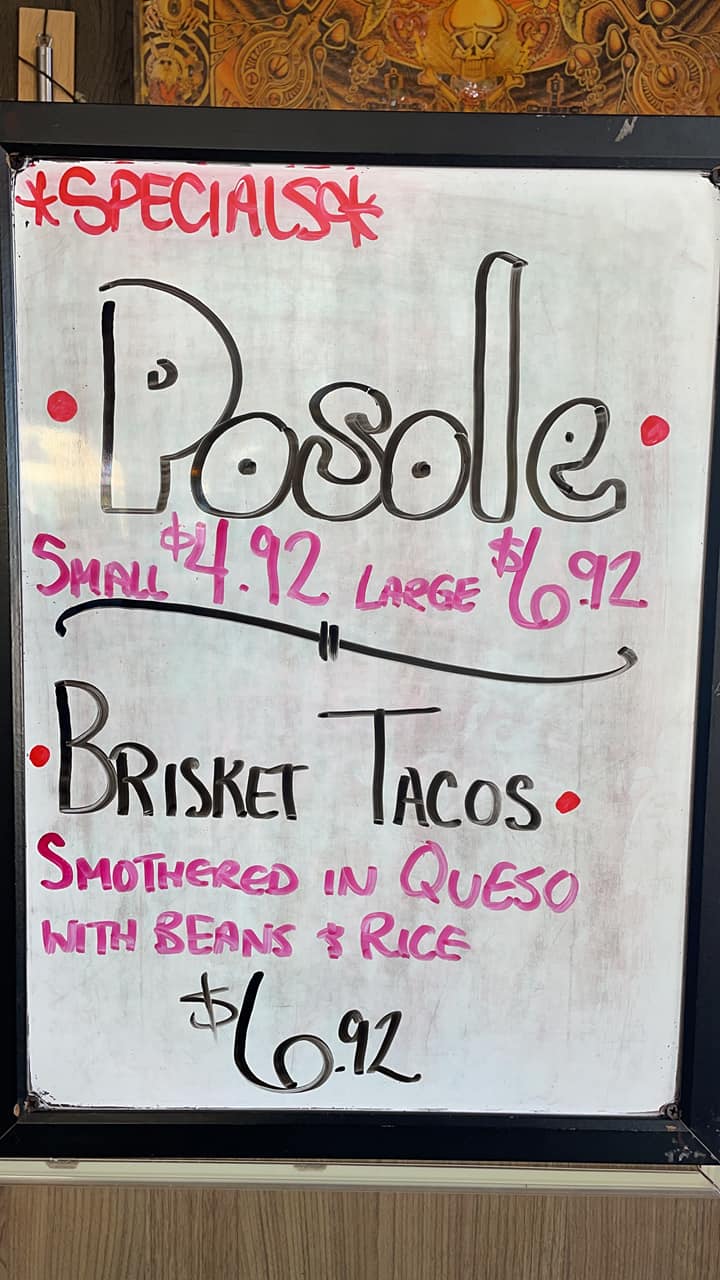 *SPECIALS*
Posole
SMALL $4.92 LARGE $6.92
BRISKET TACOS
SMOTHERED IN QUESO
WITH BEANS & RICE
$6.92